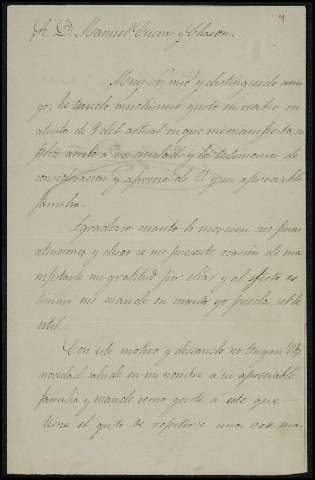 A. D. Manuel Cuevas y Chacon.
Muy Sr. mio y distinguido ami
go; he tenido muchisimo gusto en recibir su
atenta de 4 del actual en que me manifiesta su
feliz arribo á esa ciudad y los testimonios de
consideracion y aprecio de V. y su apreciable
familia.
Agradezco cuanto lo merecen sus finas
atenciones y deseo se me presente ocasion de ma
nifestarle mi gratitud por ellas y al efecto es
timaré me mande en cuanto yo pueda serle
util.
Con este motivo y deseando no tengan Vds.
novedad salude en mi nombre á su apreciable
familia y mande como guste á este que
tiene el gusto de repetirse una vez ma